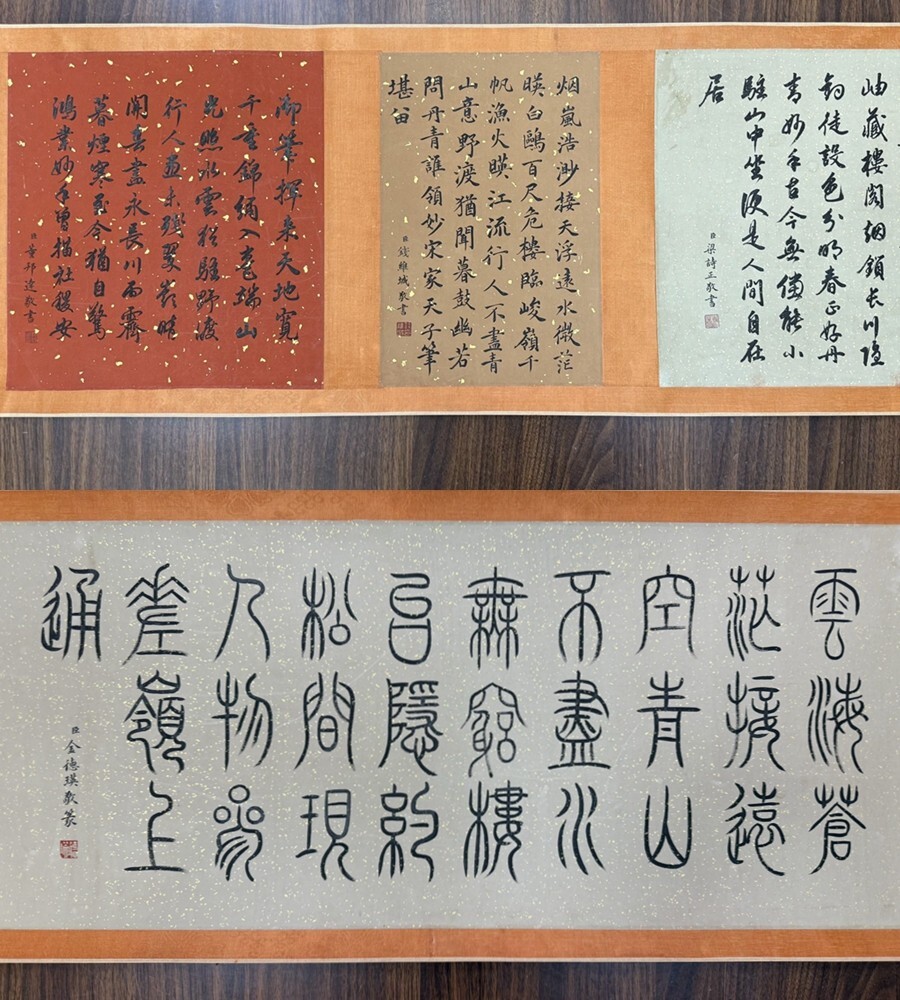 岫藏樓閣烟鎖长川隐
釣徒設色分明春正好丹
青妙手古今無儔能小
駐山中坐便是人間自在
居
臣梁詩正敬書
烟嵐浩渺接天浮遠水微茫
暎白鷗百尺危樓臨峻嶺千
帆漁火暎江流行人不盡青
山意野渡猶聞暮鼓幽若
問丹青誰領妙宋家天子筆
堪留
臣錢維城敬書
御筆揮来天地寬
千重錦繡入毫端山
光照水雲猶駐野渡
行人画未殘翠嶺晴
開春晝永長川雨霽
暮煙寒至今猶自驚
鴻業妙手曾描社稷安
臣董邦達敬書
雲海蒼
茫接遠
空青山
不盡水
無窮樓
台隱約
松間現
人物參
差嶺上
通
臣金德瑛敬篆